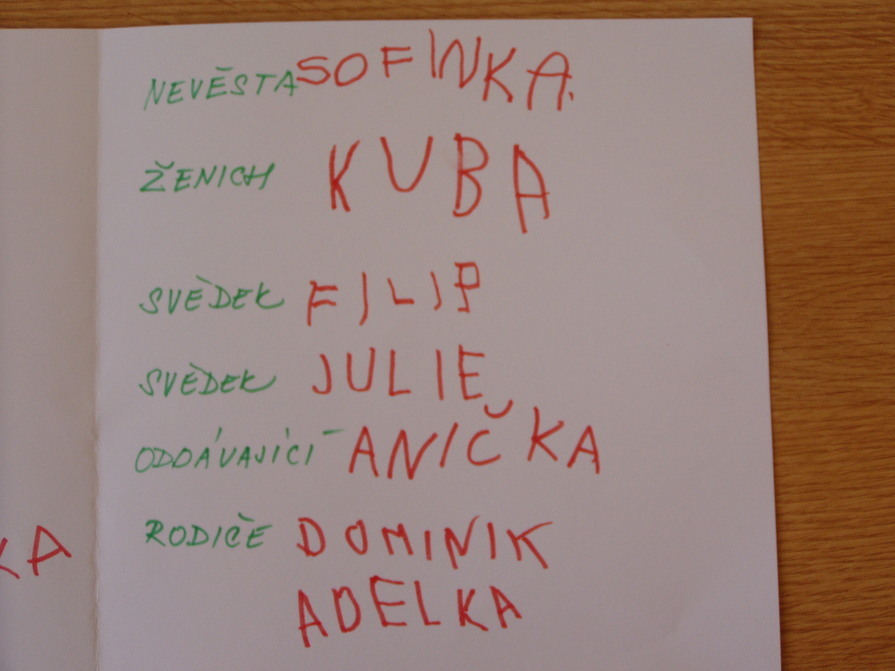 NEVĚSTA SOFINKA.
ŽENICH KUBA
SVĚDEK FILIP
SVĚDEK JULIE
ODDÁVAJÍCÍ - ANIČKA
RODIČE DOMINIK
KA
ADELKA